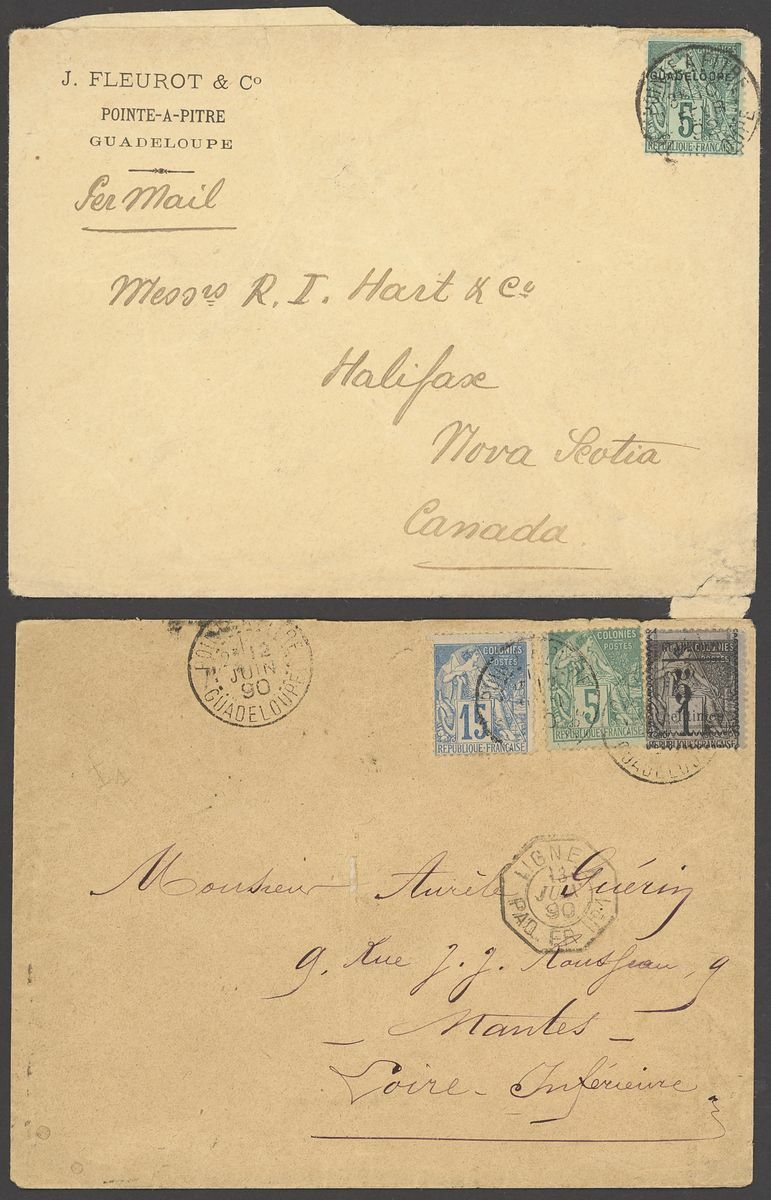 J. FLEUROT & Co
POINTE-A-PITRE
GUADELOUPE
Per Mail
COLONIES
POINTE A PITRE
GUADELOUPE
5
REPUBLIQUE FRANÇAISE
Messrs R. I. Hart & Co
Halifax
Nova Scotia
Canada
12
JUIN
90
GUADELOUPE
COLONIES
POSTES
15
REPUBLIQUE FRANÇAISE
COLONIES
POSTES
5
REPUBLIQUE FRANÇAISE
COLONIES
5
centimes
1
REPUBLIQUE FRANÇAISE
GUADELOUPE
LIGNE
JUIN
90
PAQ. FR.
Monsieur Aurèle Guérin
9. Rue J. J. Rousseau, 9
Nantes
Loire-Inférieure